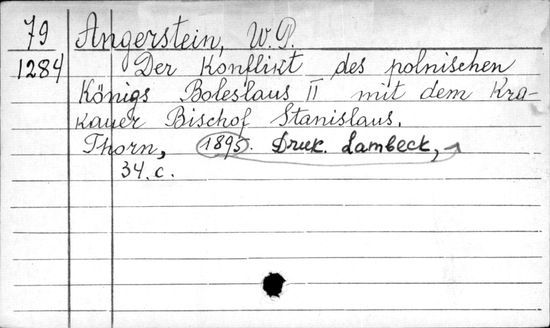 79 Angerstein, W.P.
1284 Der Konflikt des polnischen
Königs Boleslaus II mit dem Kra-
kauer Bischof Stanislaus.
Thorn, 1895. Druk. Lambeck,
34. c.